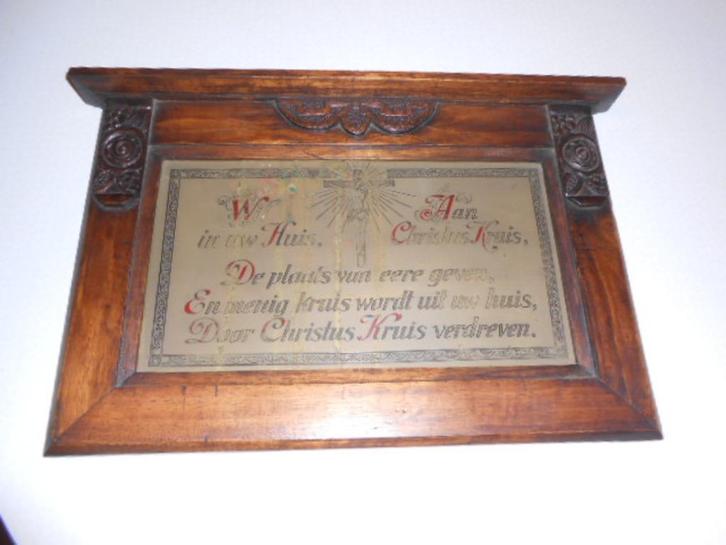 Wil Aan
in uw Huis, Christus Kruis,
De plaats van eere geven,
En menig kruis wordt uit uw huis,
Door Christus Kruis verdreven.